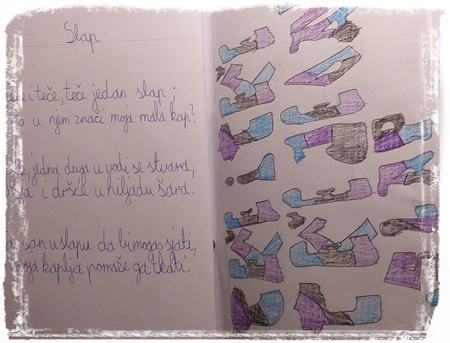 Slap
i teče, teče jedan slap;
u njem znači moja mala kap?
jedna duga u vodi se stvara,
i dršće u hiljadu šara.
san u slapu da bi mogao sjati,
moja kaplja pomaže ga tkati.